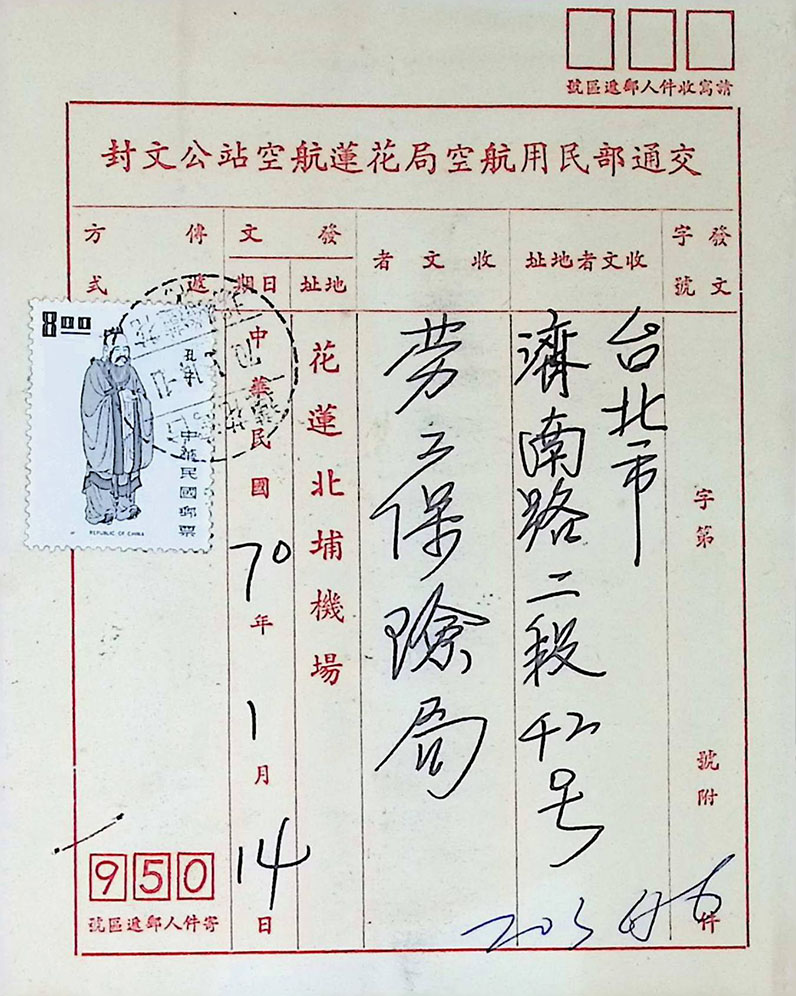 請寫收件人郵遞區號
交通部民用航空局花蓮航空站公文封
發文字號
收文者地址
收文者
發文
地址
日期
傳遞方式
字第
號附
件
台北市
濟南路二段42号
劳工保險局
花蓮北埔機場
中華民國70年1月14日
8.00
孔子
中華民國郵票
REPUBLIC OF CHINA
950
寄件人郵遞區號